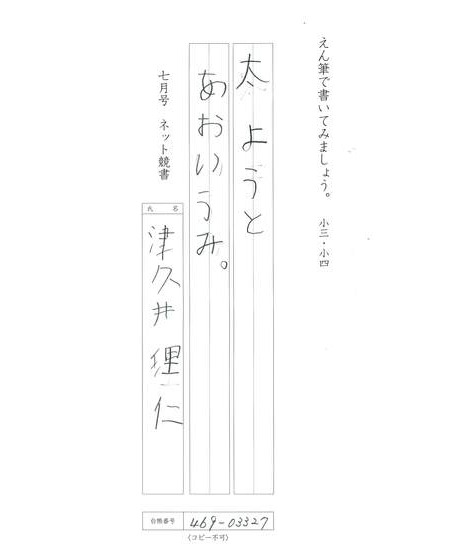 えん筆で書いてみましょう。 小三・小四
太ようと
あおいうみ。
七月号 ネット競書
氏名
津久井理仁
台帳番号 469-03327
(コピー不可)